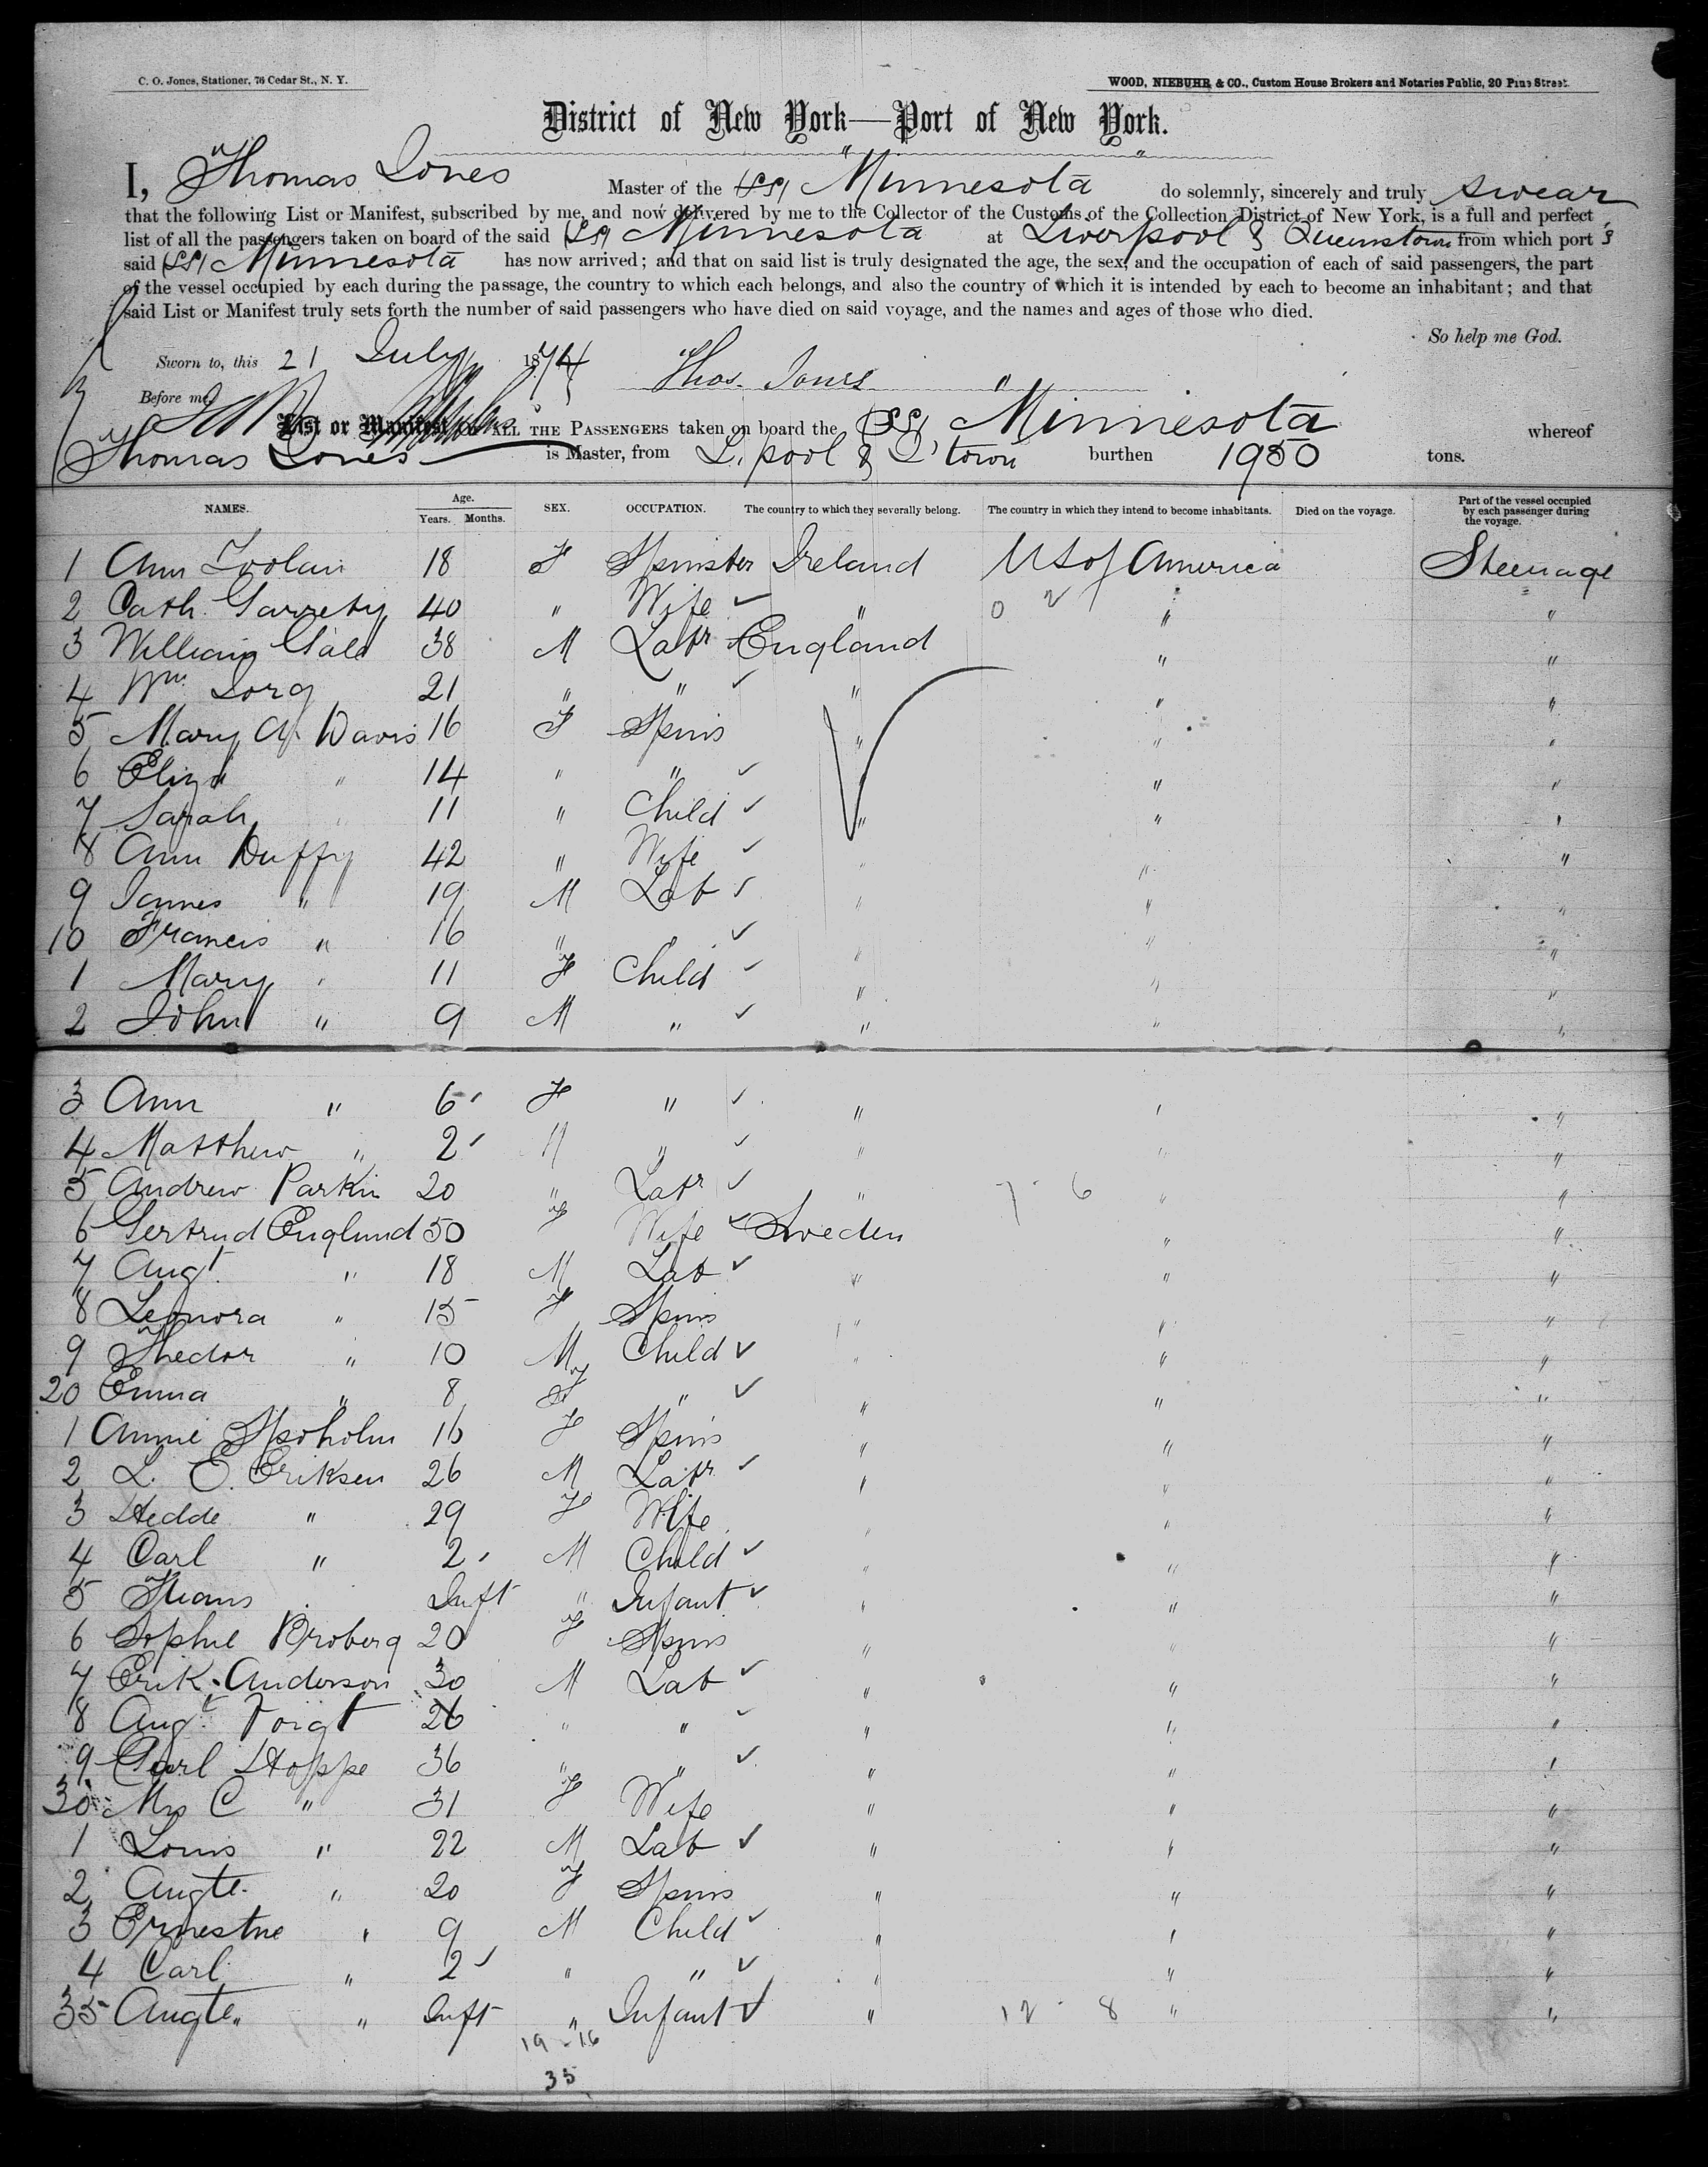 C. O. Jones, Stationer, 76 Cedar St., N. Y.
WOOD, NIEBUHR & CO., Custom House Brokers and Notaries Public, 20 Pine Street.
District of New York—Port of New York.
I, Thomas Jones Master of the SS Minnesota do solemnly, sincerely and truly swear
that the following List or Manifest, subscribed by me, and now delivered by me to the Collector of the Customs of the Collection District of New York, is a full and perfect
list of all the passengers taken on board of the said SS Minnesota at Liverpool & Queenstown from which port s
said SS Minnesota has now arrived; and that on said list is truly designated the age, the sex, and the occupation of each of said passengers, the part
of the vessel occupied by each during the passage, the country to which each belongs, and also the country of which it is intended by each to become an inhabitant; and that
said List or Manifest truly sets forth the number of said passengers who have died on said voyage, and the names and ages of those who died.
So help me God.
Sworn to, this 21 July 1874 Thos. Jones
Before me,
List or Manifest OF ALL THE PASSENGERS taken on board the SS Minnesota whereof
Thomas Jones is Master, from L.pool & Q'town burthen 1950 tons.
NAMES. Age. Years. Months. SEX. OCCUPATION. The country to which they severally belong. The country in which they intend to become inhabitants. Died on the voyage. Part of the vessel occupied by each passenger during the voyage.
1 Ann Toolan 18 F Spinster Ireland U S of America Steerage
2 Cath. Garrety 40 " Wife " 0 2 " "
3 William Gale 38 M Labr England " "
4 Wm 21 " " " " "
5 Mary A. Davis 16 F Spins " " "
6 Eliza " 14 " " " "
7 Sarah " 11 " Child " " "
8 Ann Duffy 42 " Wife " " "
9 James " 19 M Lab " " "
10 Francis " 16 " " " " "
1 Mary " 11 F Child " " "
2 John " 9 M " " " "
3 Ann " 6 F " " " "
4 Matthew " 2 M " " " "
5 Andrew Parkin 20 " Labr " 7 6 " "
6 Gertrud Englund 50 F Wife Sweden " "
7 Augt. " 18 M Lab " " "
8 Leonora " 15 F Spins " " "
9 Thedor " 10 M Child " " "
20 Emma " 8 F " " " "
1 Annie 16 F Spins " " "
2 L. E. Eriksen 26 M Labr " " "
3 Hedde " 29 F Wife " " "
4 Carl " 2 M Child " " "
5 Inft " Infant " " "
6 Sophie Broberg 20 F Spins " " "
7 Erik Anderson 30 M Lab " " "
8 Augt. Voigt 26 " " " " "
9 Carl Hoppe 36 " " " " "
30 Mrs C " 31 F Wife " " "
1 Louis " 22 M Lab " " "
2 Augte. " 20 F Spins " " "
3 Ernestne " 9 M Child " " "
4 Carl " 2 " " " " "
35 Augte. " Inft " Infant " 12 8 " "
19 - 16
35